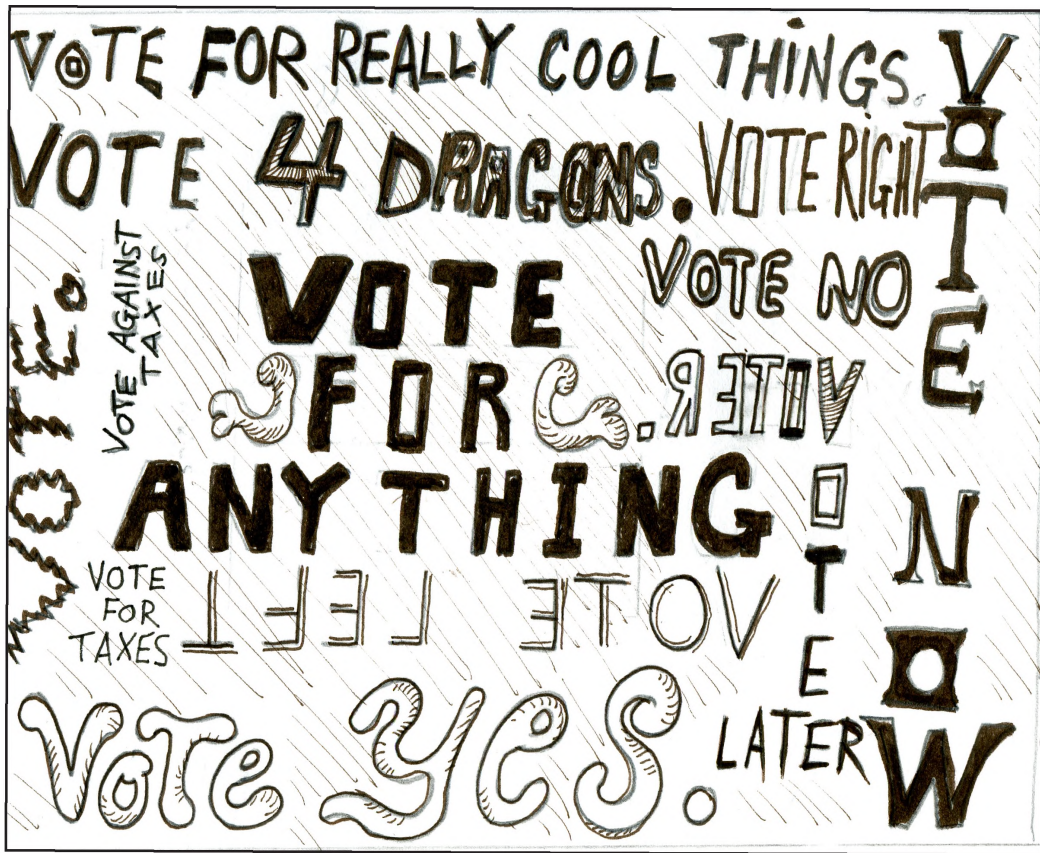 VOTE FOR REALLY COOL THINGS.
VOTE 4 DRAGONS.
VOTE RIGHT
VOTE NOW
VOTE.
VOTE AGAINST
TAXES
VOTE NO
VOTE
FOR
ANYTHING
VOTER.
VOTE
LATER
VOTE
FOR
TAXES
VOTE LEFT
VOTE YES.